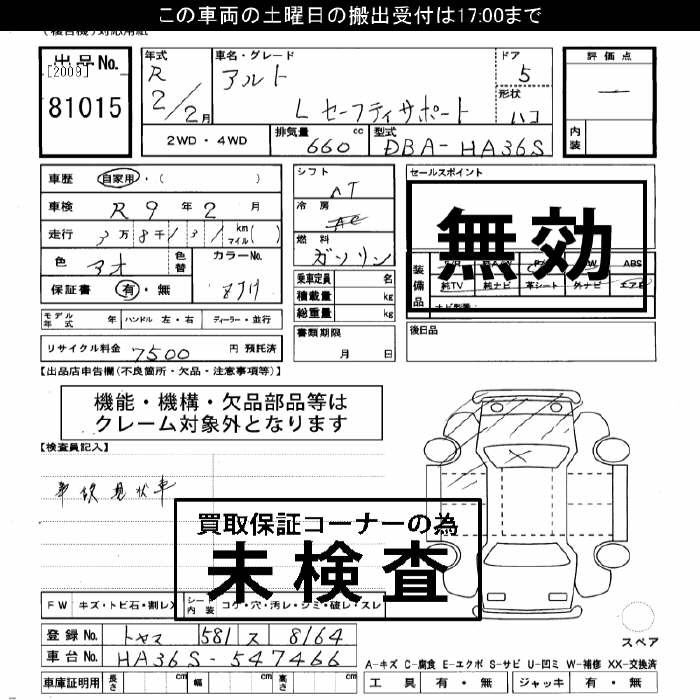 この車両の土曜日の搬出受付は17:00まで
出品No.
[2009]
81015
年式
R
2/2月
車名・グレード
アルト
L セーフティサポート
ドア
5
形状
ハコ
評価点
内装
2WD・4WD
排気量 660 cc
型式 DBA-HA36S
車歴 自家用・( )
車検 R 9年 2月
走行 km マイル( )
色 アオ 色替
カラーNo.
保証書 有・無
シフト AT
冷房 AC
燃料 ガソリン
乗車定員 名
積載量 kg
総重量 kg
セールスポイント
無効
装備品
ABS
純TV 純ナビ 革シート 外ナビ エアB
モデル年式 年 ハンドル 左・右 ディーラー・並行
書類期限
月 日
後日品
リサイクル料金 7500 円 預託済
【出品店申告欄(不良箇所・欠品・注意事項等)】
機能・機構・欠品部品等は
クレーム対象外となります
【検査員記入】
車検現状車
買取保証コーナーの為
未検査
FW キズ・トビ石・割レ
シート内装 コゲ・穴・汚レ・シミ・破レ・スレ
登録No. トヤマ 581 ス 8164
車台No. HA36S-547466
車庫証明用 長さ cm 幅 cm 高さ cm
スペア
A-キズ C-腐食 E-エクボ S-サビ U-凹ミ W-補修 XX-交換済
工具 有・無 ジャッキ 有・無